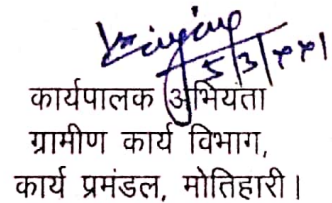 5/3/
कार्यपालक अभियंता
ग्रामीण कार्य विभाग,
कार्य प्रमंडल, मोतिहारी।